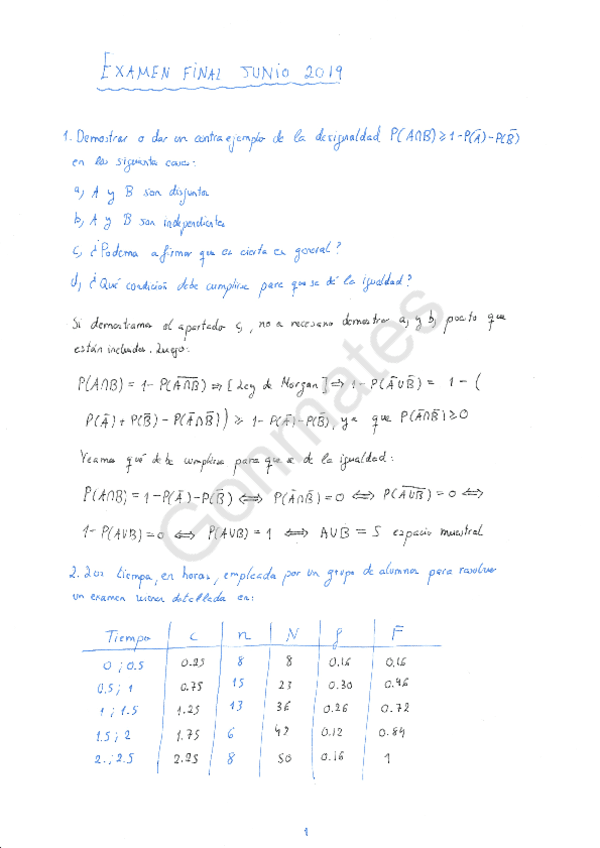 EXAMEN FINAL JUNIO 2019
1. Demostrar o dar un contraejemplo de la desigualdad P(A∩B) ≥ 1-P(Ā)-P(B̄)
en los siguientes casos:
a) A y B son disjuntos
b) A y B son independientes
c) ¿Podemos afirmar que es cierta en general?
d) ¿Qué condición debe cumplirse para que se dé la igualdad?
Si demostramos el apartado c, no es necesario demostrar a) y b) puesto que
están incluidos. Luego:
P(A∩B) = 1- P(\overline{A∩B}) ⇒ [Ley de Morgan] ⇒ 1- P(Ā∪B̄) = 1 - (
P(Ā) + P(B̄) - P(Ā∩B̄)) ≥ 1- P(Ā) - P(B̄), ya que P(Ā∩B̄) ≥ 0
Veamos qué debe cumplirse para que se de la igualdad:
P(A∩B) = 1-P(Ā)-P(B̄) ⟺ P(Ā∩B̄) = 0 ⟺ P(\overline{A∪B}) = 0 ⟺
1- P(A∪B) = 0 ⟺ P(A∪B) = 1 ⟺ A∪B = S espacio muestral
2. Los tiempos, en horas, empleados por un grupo de alumnos para resolver
un examen vienen detallados en:
Tiempo c n N f F
0 ; 0.5 0.25 8 8 0.16 0.16
0.5 ; 1 0.75 15 23 0.30 0.46
1 ; 1.5 1.25 13 36 0.26 0.72
1.5 ; 2 1.75 6 42 0.12 0.84
2. ; 2.5 2.25 8 50 0.16 1
Gonmates
1